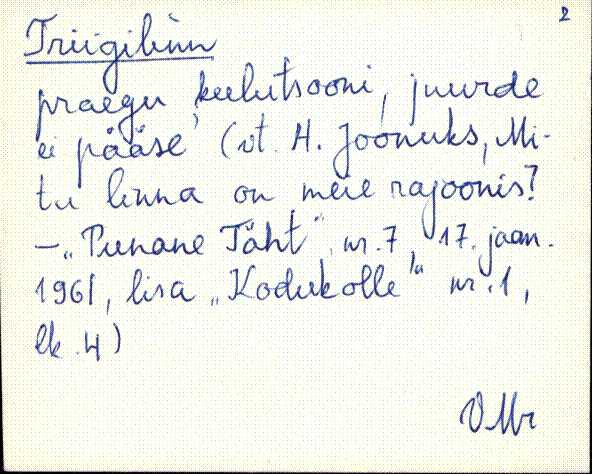 2
Triigilinn
praegu keelutsooni, juurde
ei pääse (vt. H. Joonuks, Mi-
tu linna on meie rajoonis?
– „Punane Täht", nr. 7, 17. jaan.
1961, lisa „Kodukolle" nr. 1,
lk. 4)
VMr